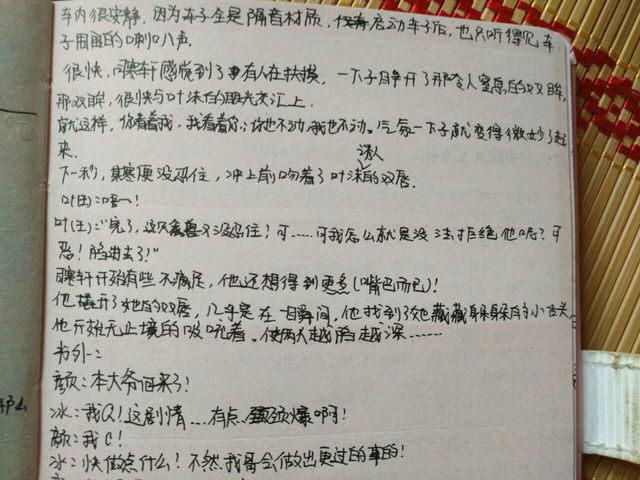 车内很安静，因为车子全是隔音材质，仅有启动车子后，也只听得见车
子周围的喇叭声。
很快，骐轩感觉到了有人在扶摸，一下子睁开了那令人窒息的双眸，
那双眸，很快与叶沫的眼光交汇上．
就这样，你看着我，我看着你；你也不动，我也不动。气氛一下子就变得微妙了起
来．
诱人
下一秒，某寒便没忍住，冲上前吻着了叶沫的双唇．
叶(主)：唔一！
叶(主)："完了，这只禽兽又没忍住！可……可我怎么就是没法拒绝他呢？可
恶！陷进去了！"
骐轩开始有些不满足，他还想得到更多(嘴巴而已)！
他撬开了她的双唇，几乎是在一瞬间，他找到了她藏藏躲躲的小舌头，
他开始无止境的吸吮着。使两人越陷越深……
书外二：
颜：本大爷回来了！
冰：我Q！这剧情....有点 劲爆啊！
颜：我C！
冰：快做点什么！不然我哥会做出更过的事的！